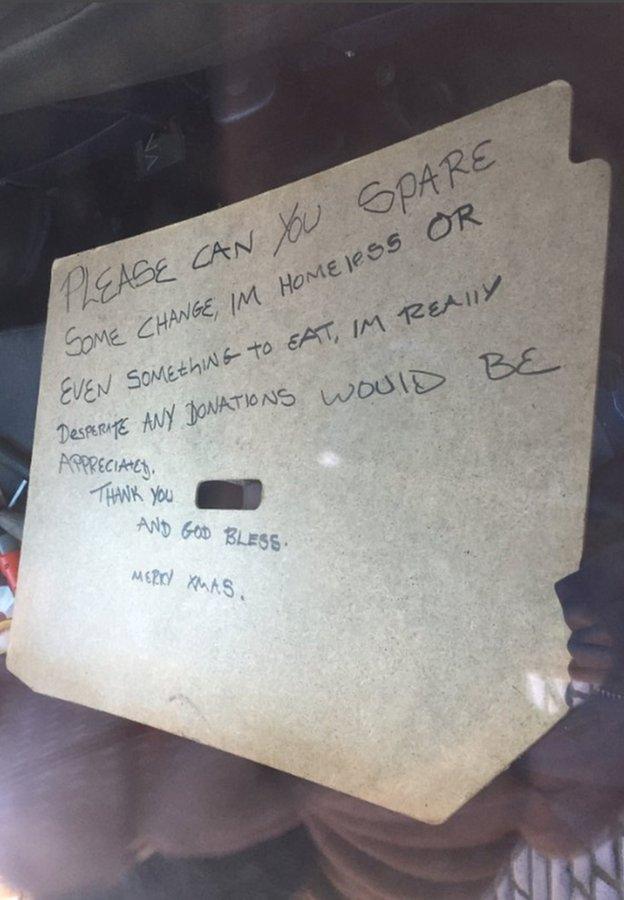 PLEASE CAN YOU SPARE
SOME CHANGE, IM HOMElESS OR
EVEN SOMEtHING to EAT, IM REAllY
DesPERATE ANY DONATIONS WOUlD BE
APPRECIAtED.
THANK YOU
AND GOD BLESS.
MERRY XMAS.